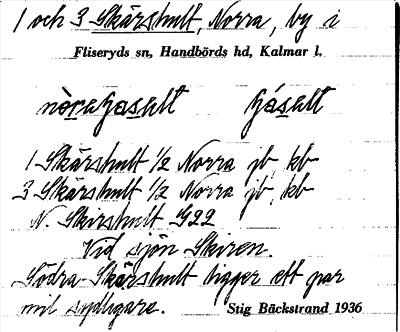 1 och 3 Skärshult, Norra, by i
Fliseryds sn, Handbörds hd, Kalmar l.
1 Skärshult 1/2 Norra jb, kb
3 Skärshult 1/2 Norra jb, kb
N. Skirshult G22
Vid sjön Skiren.
Södra Skärshult ligger ett par
mil sydligare. Stig Bäckstrand 1936